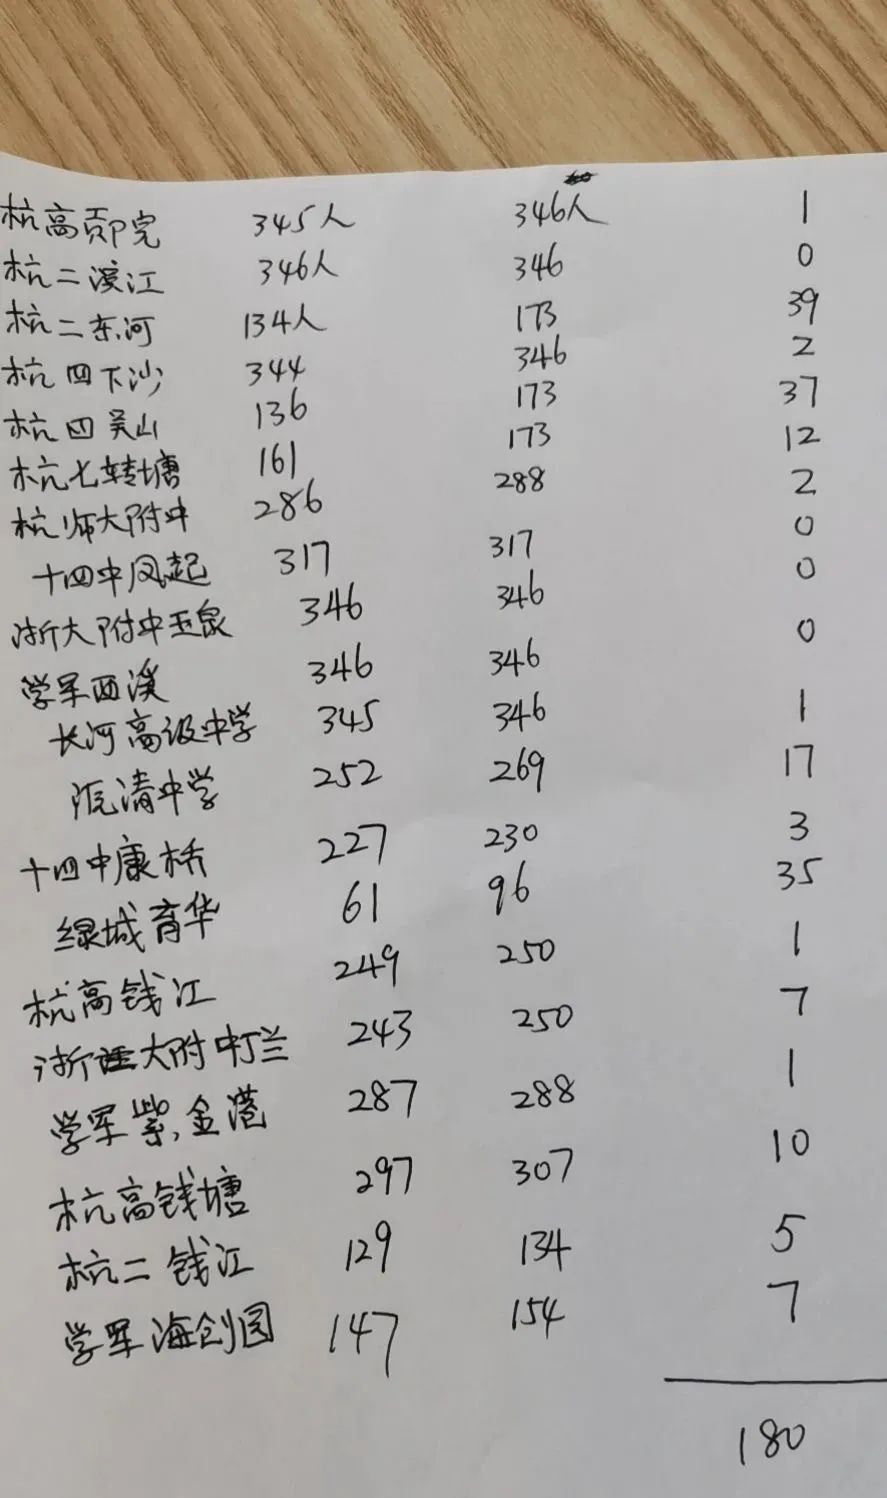 杭高贡院 345人 346人 1
杭二滨江 346人 346 0
杭二东河 134人 173 39
杭四下沙 344 346 2
杭四吴山 136 173 37
杭七转塘 161 173 12
杭师大附中 286 288 2
十四中凤起 317 317 0
浙大附中玉泉 346 346 0
学军西溪 346 346 0
长河高级中学 345 346 1
浣清中学 252 269 17
十四中康桥 227 230 3
绿城育华 61 96 35
杭高钱江 249 250 1
浙大附中丁兰 243 250 7
学军紫金港 287 288 1
杭高钱塘 297 307 10
杭二钱江 129 134 5
学军海创园 147 154 7
180